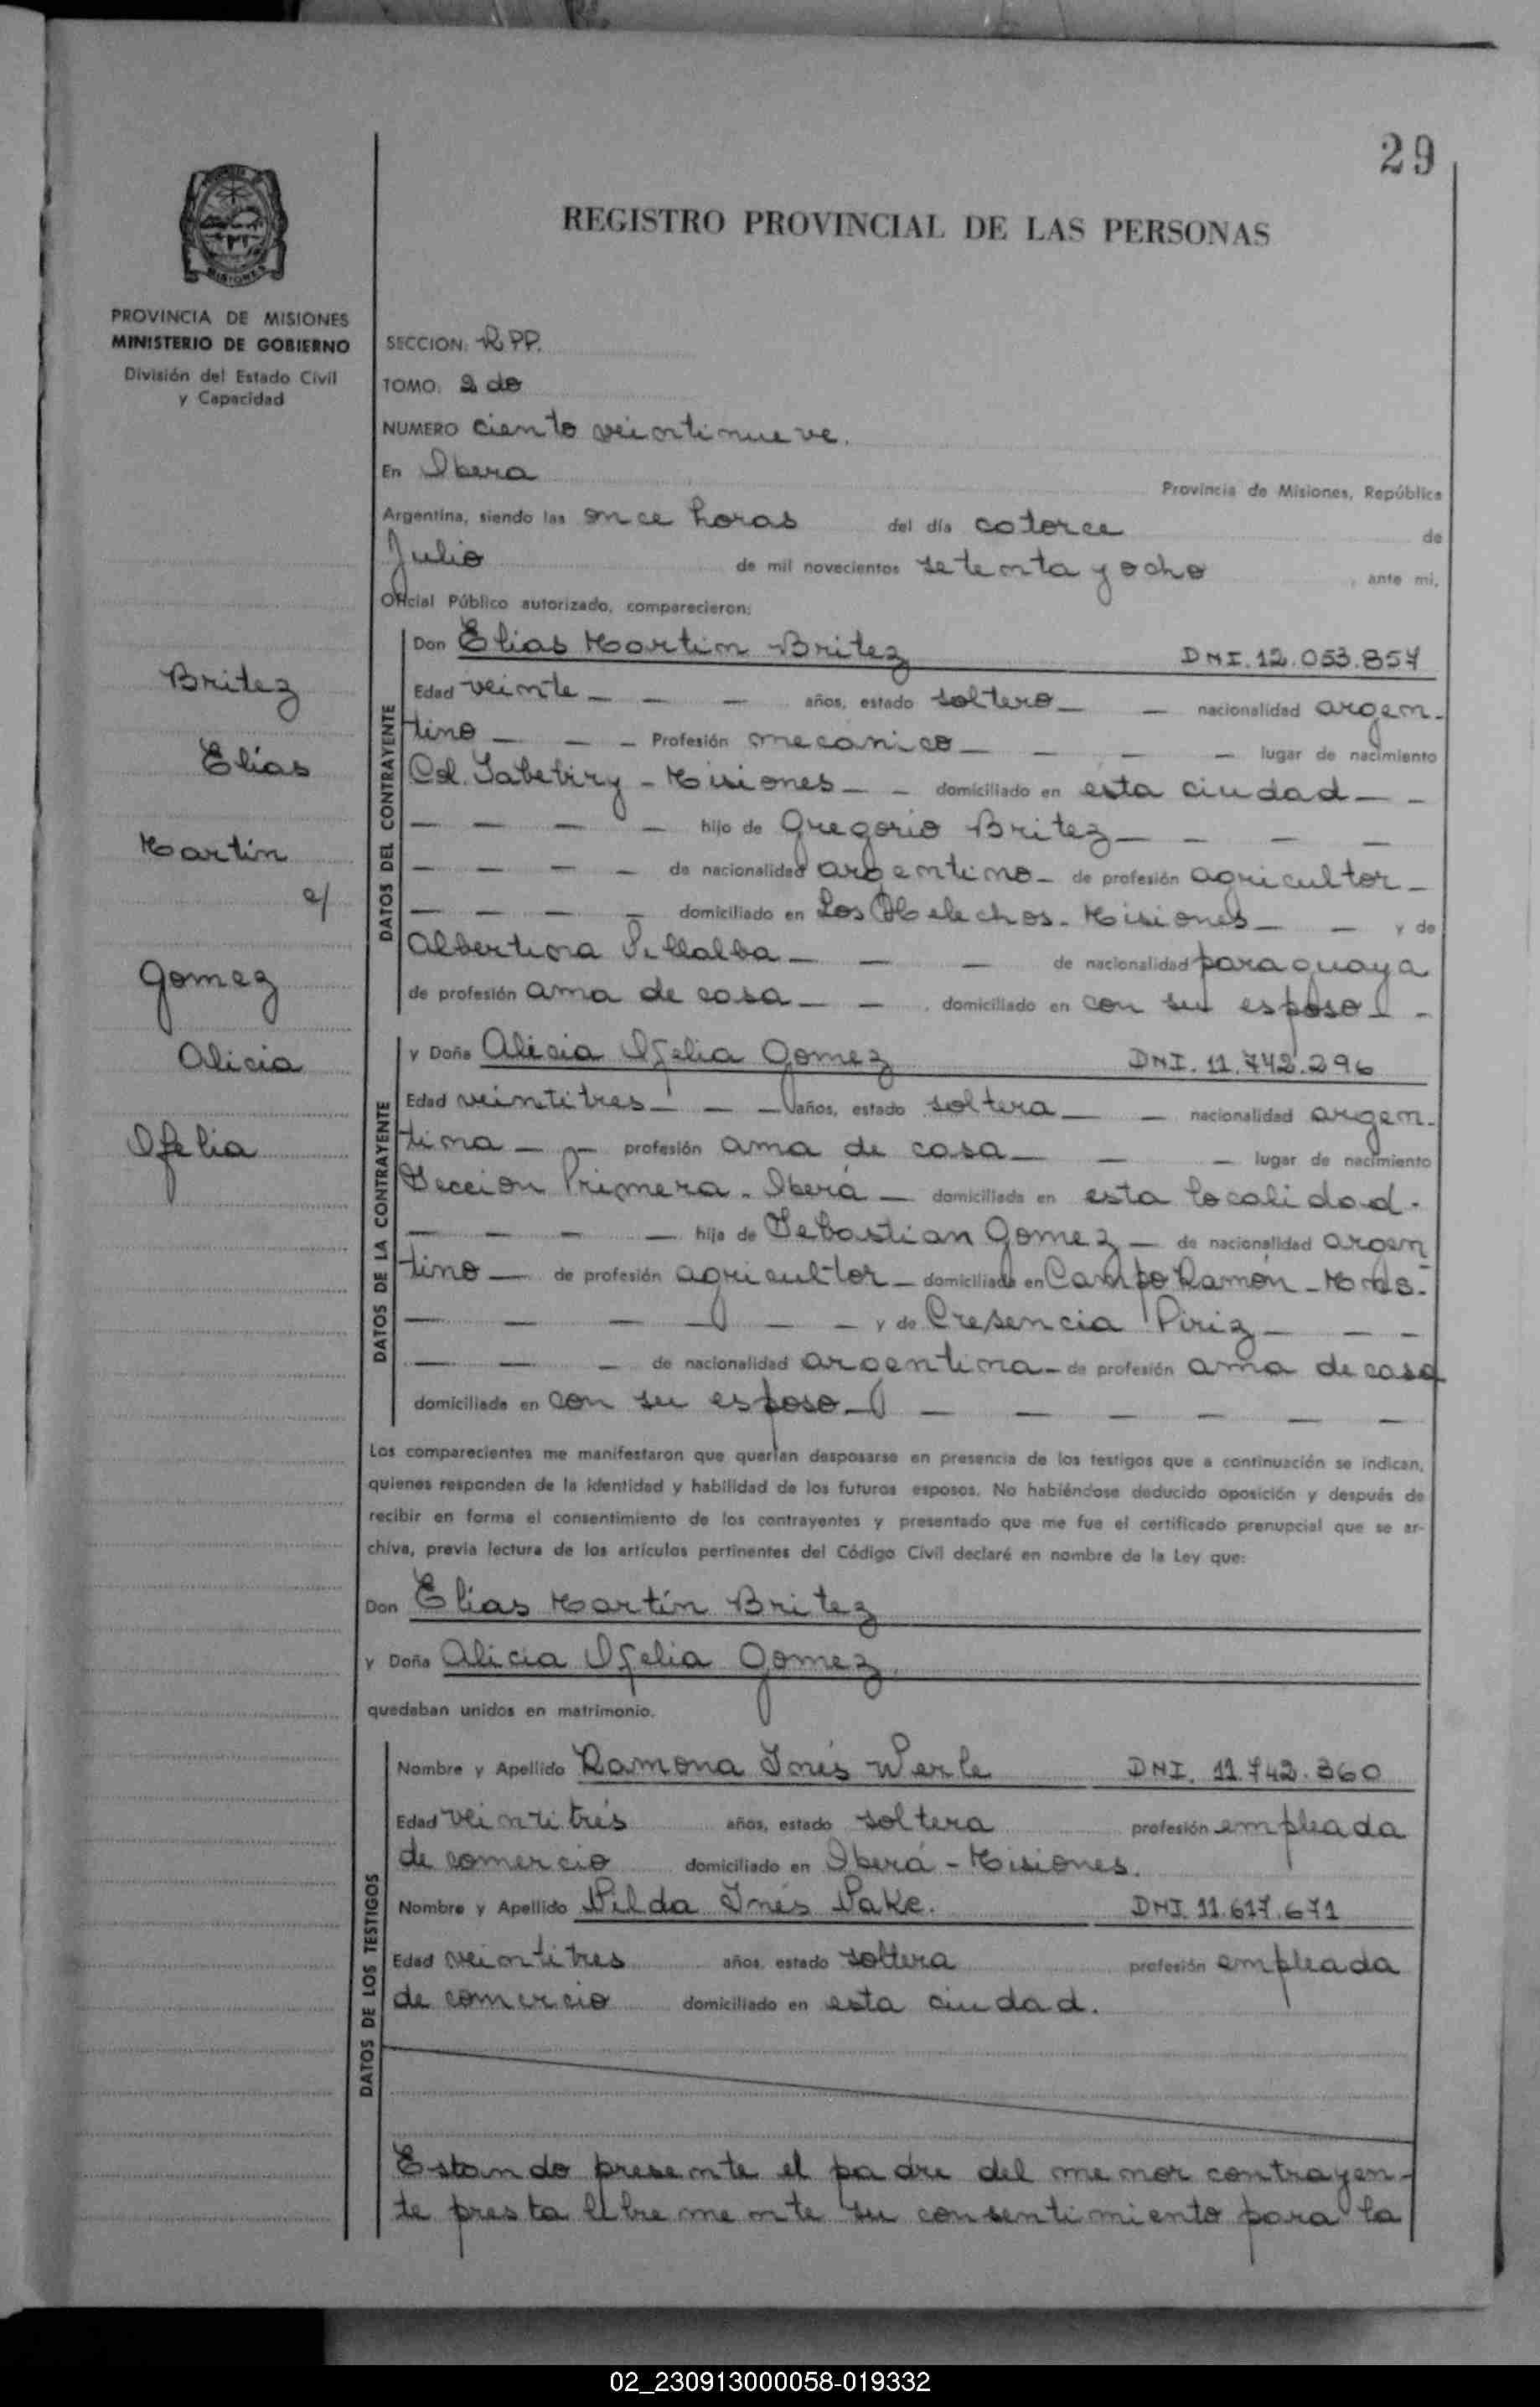 29
REGISTRO PROVINCIAL DE LAS PERSONAS
MISIONES
PROVINCIA DE MISIONES
MINISTERIO DE GOBIERNO
División del Estado Civil
y Capacidad
SECCION: R.PP.
TOMO: 2 do
NUMERO ciento veintinueve.
En Obera Provincia de Misiones, República
Argentina, siendo las once horas del día catorce de
Julio de mil novecientos setenta y ocho , ante mi,
Oficial Público autorizado, comparecieron:
Britez
Elías
Martín
c/
Gomez
Alicia
Ofelia
DATOS DEL CONTRAYENTE
Don Elias Martin Britez DNI. 12.053.857
Edad veinte _ _ _ años, estado soltero _ _ nacionalidad argen-
tino _ _ _ Profesión mecanico _ _ _ _ lugar de nacimiento
Col. Yabebiry - Misiones _ _ domiciliado en esta ciudad _ _
_ _ _ _ hijo de Gregorio Britez _ _ _ _
_ _ _ _ de nacionalidad argentino _ de profesión agricultor _
_ _ _ _ domiciliado en Los Helechos - Misiones _ _ y de
Albertina Villalba _ _ _ de nacionalidad paraguaya
de profesión ama de casa _ _ , domiciliado en con su esposo _ _
DATOS DE LA CONTRAYENTE
y Doña Alicia Ofelia Gomez DNI. 11.742.296
Edad veintitres _ _ _ años, estado soltera _ _ nacionalidad argen-
tina _ _ profesión ama de casa _ _ _ lugar de nacimiento
Seccion Primera - Oberá _ domiciliada en esta localidad.
_ _ _ _ hija de Sebastian Gomez _ de nacionalidad argen
tino _ de profesión agricultor _ domiciliada en Campo Ramón - Mnes.
_ _ _ _ _ _ y de Cresencia Piriz _ _ _
_ _ _ de nacionalidad argentina _ de profesión ama de casa
domiciliada en con su esposo _ _ _ _ _ _ _
Los comparecientes me manifestaron que querían desposarse en presencia de los testigos que a continuación se indican,
quienes responden de la identidad y habilidad de los futuros esposos. No habiéndose deducido oposición y después de
recibir en forma el consentimiento de los contrayentes y presentado que me fue el certificado prenupcial que se ar-
chiva, previa lectura de los artículos pertinentes del Código Civil declaré en nombre de la Ley que:
Don Elías Martín Britez
y Doña Alicia Ofelia Gomez.
quedaban unidos en matrimonio.
DATOS DE LOS TESTIGOS
Nombre y Apellido Ramona Inés Werle DNI. 11.742.360
Edad veintitrés años, estado soltera profesión empleada
de comercio domiciliado en Oberá - Misiones.
Nombre y Apellido Nilda Inés Pake. DNI. 11.617.671
Edad veintitres años, estado soltera profesión empleada
de comercio domiciliado en esta ciudad.
Estando presente el padre del menor contrayen-
te presta libremente su consentimiento para la
02_230913000058-019332